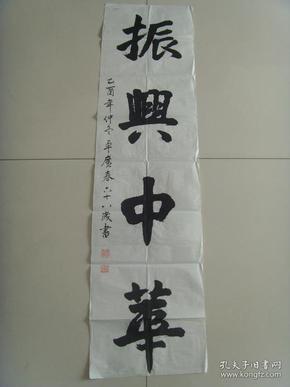 振興中華
乙酉年仲冬平廣春六十八歲書
孔夫子旧书网